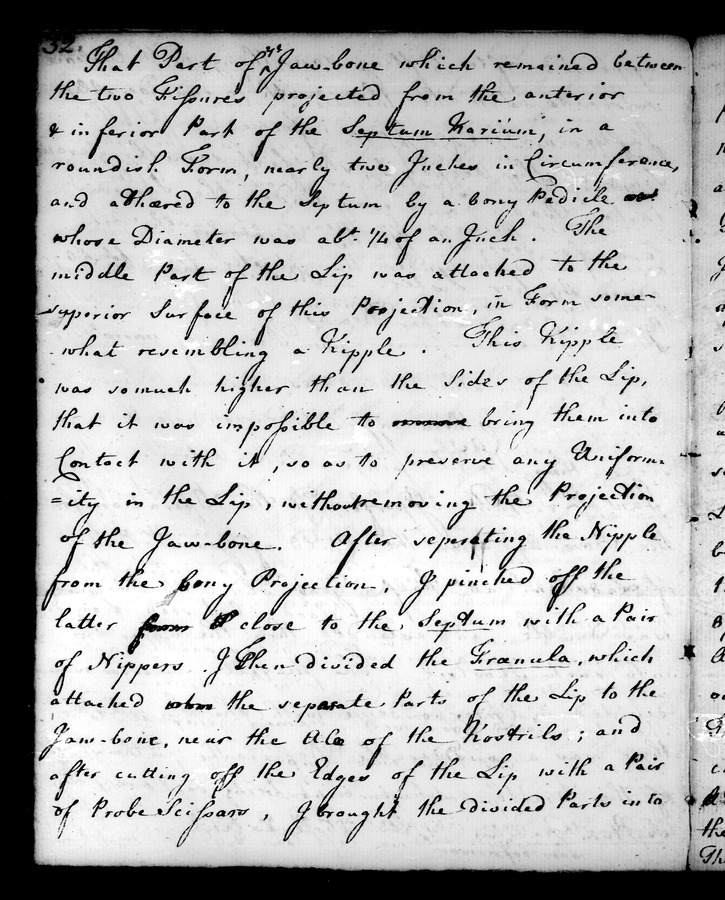 32.
That Part of ye Jaw-bone which remained between
the two Fissures projected from the anterior
& inferior Part of the Septum Narium, in a
roundish Form, nearly two Inches in Circumference,
and adhered to the Septum by a bony Pedicle
whose Diameter was abt. 1/4 of an Inch. The
middle Part of the Lip was attached to the
superior Surface of this Projection, in Form some-
what resembling a Nipple. This Nipple
was so much higher than the Sides of the Lip,
that it was impossible to bring them into
Contact with it, so as to preserve any Uniform-
=ity in the Lip, without removing the Projection
of the Jaw-bone. After seperating the Nipple
from the bony Projection, I pinched off the
latter close to the Septum with a Pair
of Nippers. I then divided the Frænula, which
attached the separate Parts of the Lip to the
Jaw-bone, near the Alæ of the Nostrils; and
after cutting off the Edges of the Lip with a Pair
of Probe Scissars, I brought the divided Parts into